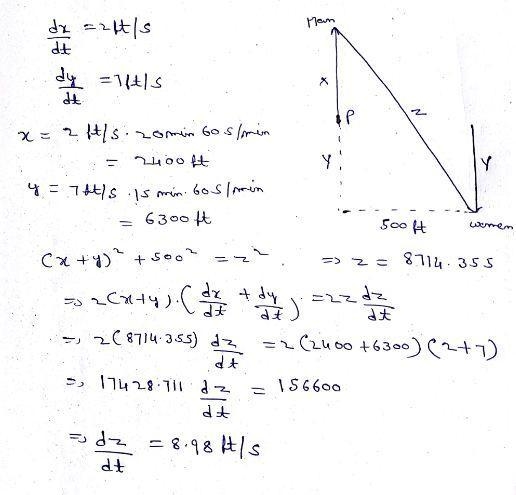 dx/dt = 2 ft/s
dy/dt = 7 ft/s
x = 2 ft/s · 20 min 60 s/min
= 2400 ft
y = 7 ft/s · 15 min · 60 s/min
= 6300 ft
Man
x
P
z
y
y
500 ft
women
(x+y)² + 500² = z². ⇒ z = 8714.355
⇒ 2(x+y)·(dx/dt + dy/dt) = 2z dz/dt
⇒ 2(8714.355) dz/dt = 2(2400+6300)(2+7)
⇒ 17428.711 dz/dt = 156600
⇒ dz/dt = 8.98 ft/s